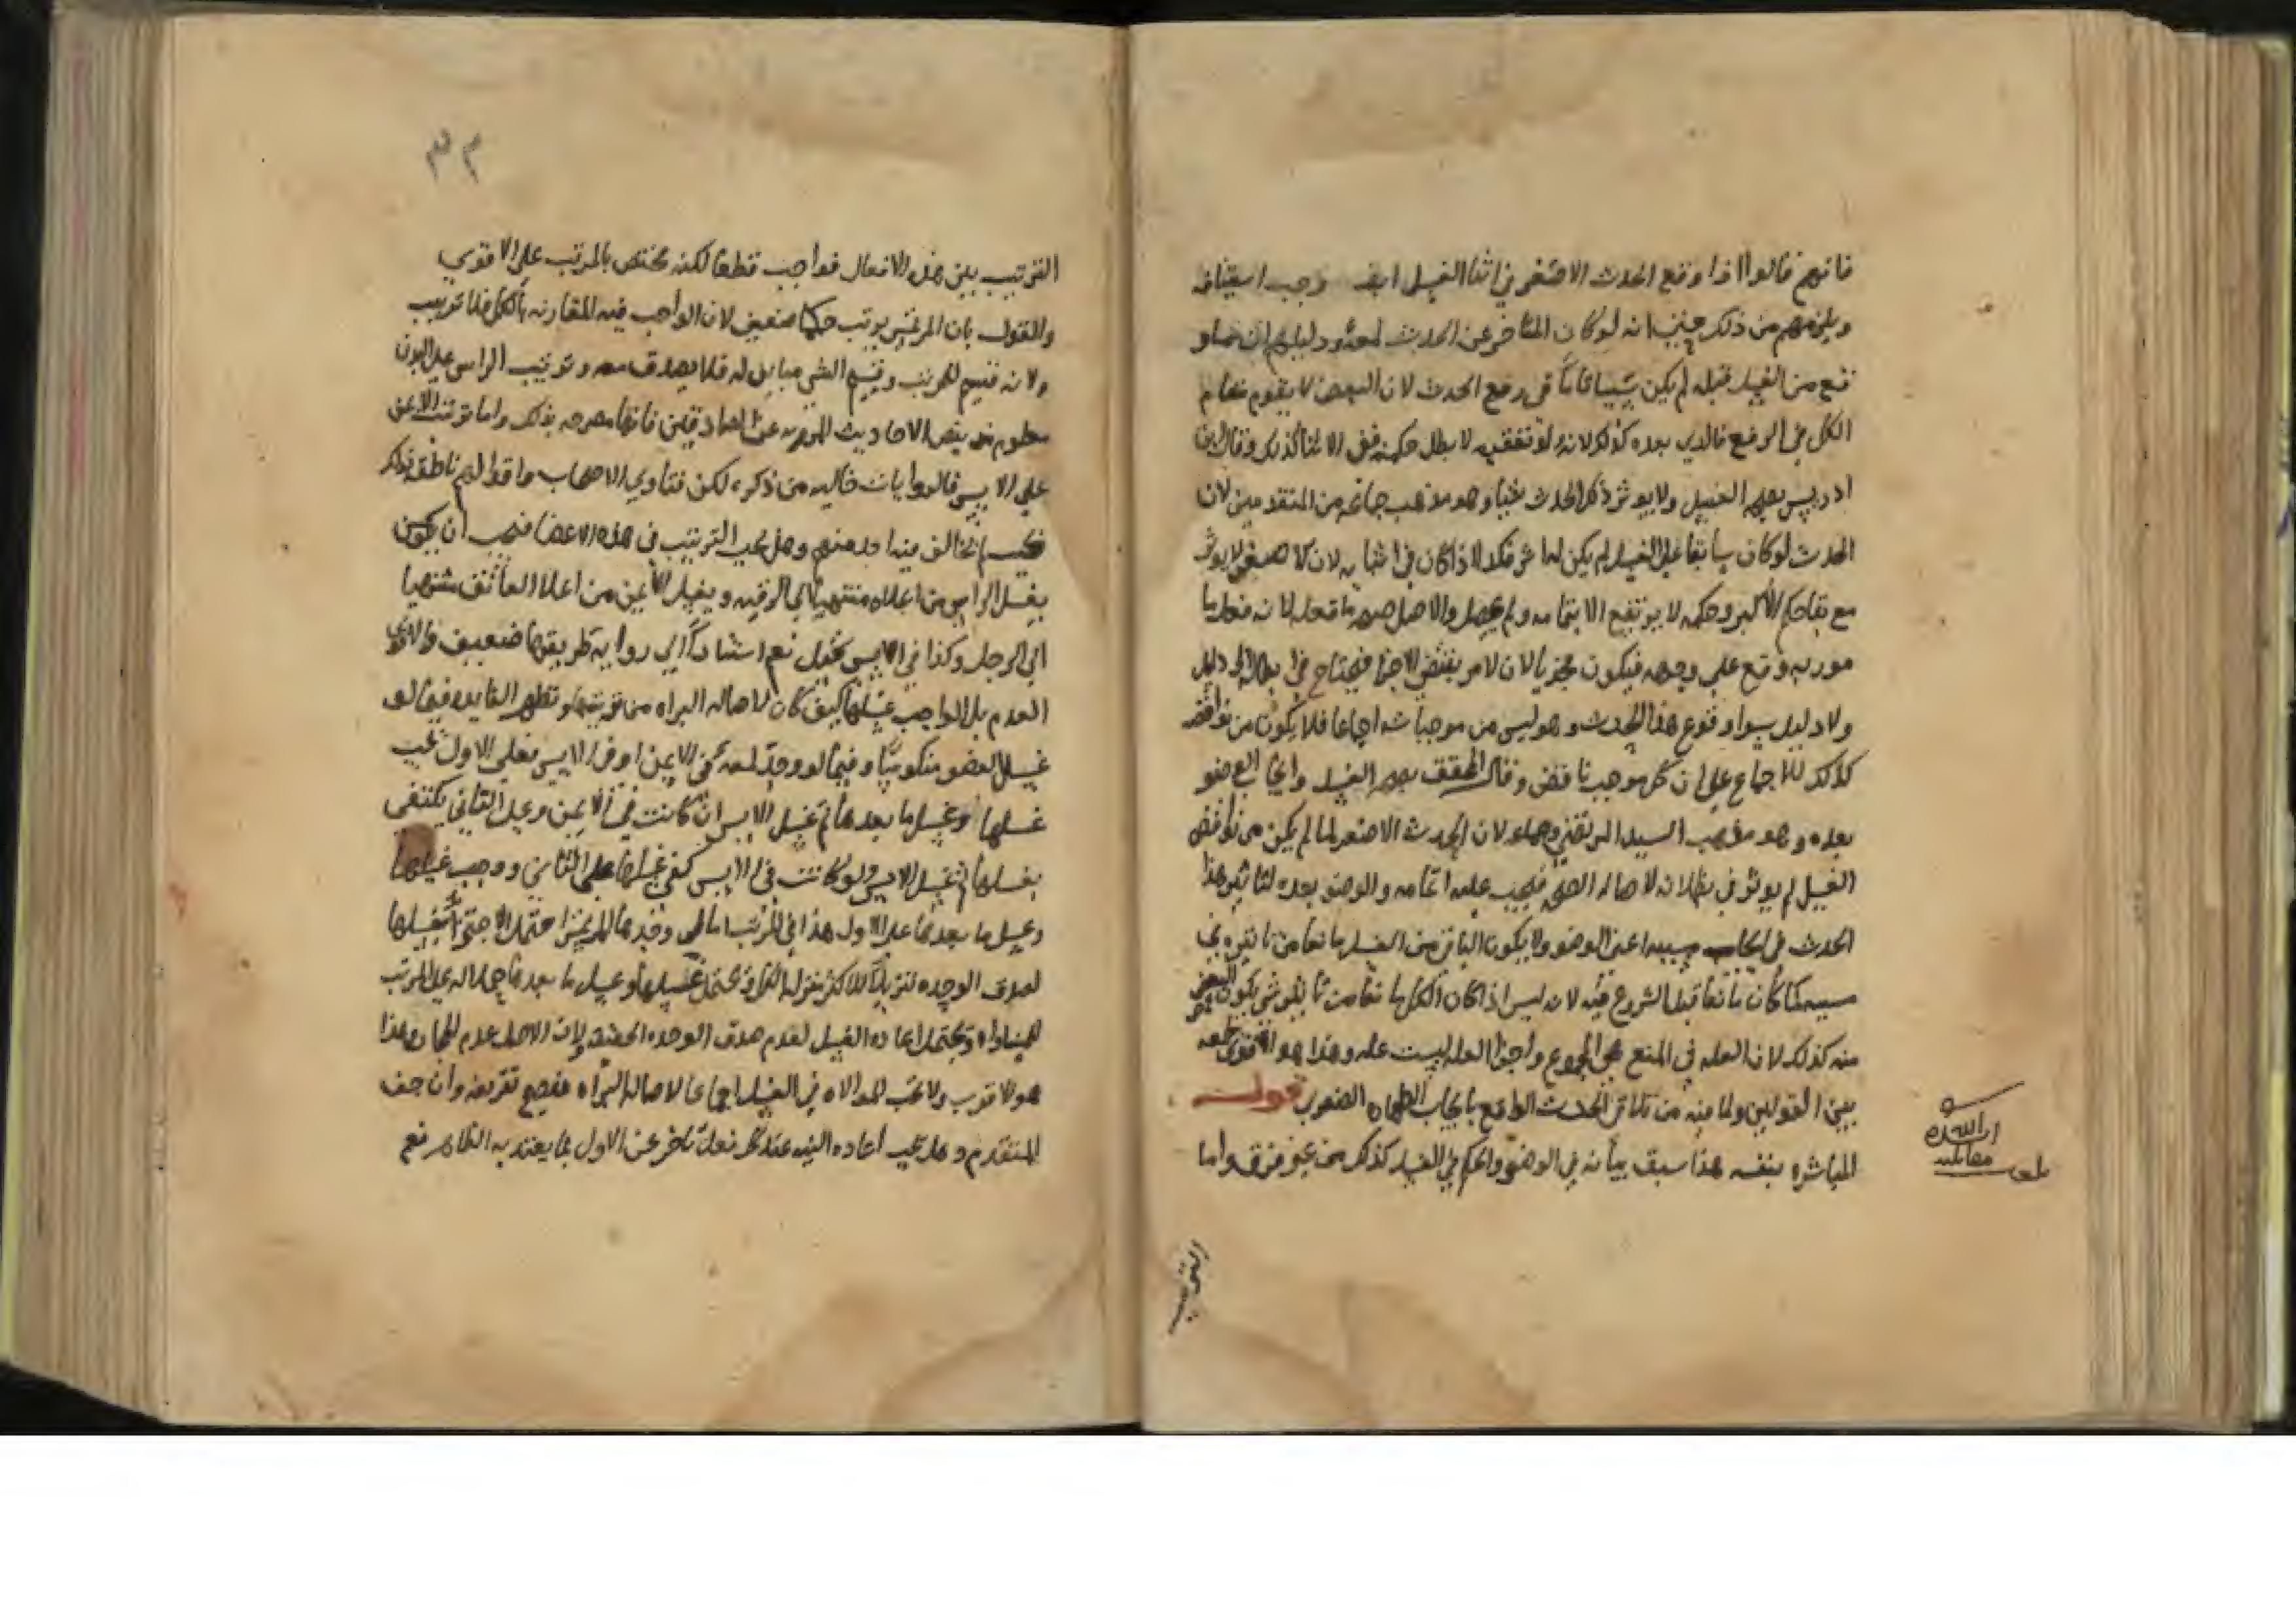 فانهم قالوا اذا وقع الحدث الاصغر في اثنا الغسل وجب استينافه
ويلزمهم من ذلك حينئذ انه لو كان المتاخر عن الحدث لمعه ودليلهم ان ما
تقع من الغسل قبله لم يكن شيئا تاما في رفع الحدث لان البعض لا يقوم مقام
الكل في الرفع فالذي بعده كذلك لانه لو تعقبه لابطل حكمه ففي الاثنا كذلك وقال ابن
ادريس يصح الغسل ولا يوثر ذلك الحدث شيئا وهو مذهب جماعه من المتقدمين لان
الحدث لو كان سابقا على الغسل لم يكن له اثر فكذا اذا كان في اثنايه لان الاصغر لا يوثر
مع بقا حكم الاكبر وحكمه لا يرتفع الا بتمامه ولم يحصل والاصل صحه ما فعله لانه فعل ما
مور به وقع على وجهه فيكون مجزيا لان الامر يقتضي الاجزا فيحتاج في ابطاله الى دليل
ولا دليل سوا وقوع هذا الحدث وهو ليس من موجباته اجماعا فلا يكون من نواقضه
كذلك للاجماع على ان كل موجب ناقض وقال المحقق يصح الغسل وايجاب الوضو
بعده وهو مذهب السيد المرتضى لان الحدث الاصغر لما لم يكن من نواقض
الغسل لم يوثر في بطلانه لاصاله الصحه فيجب عليه اتمامه والوضو بعده لتاثير هذا
الحدث في ايجاب مسببه اعني الوضو ولا يكون الباقي من الغسل مانعا من تاثيره في
مسببه كما كان مانعا قبل الشروع فيه لانه ليس اذا كان الكل مانعا من تاثير شي يكون البعض
منه كذلك لان العله في المنع هي المجموع واجزا العله ليست عله وهذا هو الاقوى
بين القولين ولما فيه من تلافي الحدث الواقع بايجاب الطهاره الصغرى قوله
المباشره بنفسه هذا سبق بيانه في الوضو والحكم في الغسل كذلك من غير فرق واما
الترتيب
بلغت مقابله
ايده الله
٣٢
الترتيب بين هذه الافعال فواجب قطعا لكنه مختص بالمرتب على الاقوى
والقول بان المرتمس يرتب حكما ضعيف لان الواجب فيه المقارنه بالكل فلا ترتيب
ولانه قسيم للمرتب وقسيم الشي مباين له فلا يصدق معه وترتيب الراس على البدن
معلوم بنص الاحاديث المرويه عن الصادقين فانها مصرحه بذلك واما ترتيب الايمن
على الايسر فالروايات خاليه من ذكره لكن فتاوي الاصحاب واقوالهم ناطقه بذلك
لم يخالف فيه احد منهم وهل يجب الترتيب في هذه الاعضا فيجب ان يكون
يغسل الراس من اعلاه منتهيا الى الرقبه ويغسل الايمن من اعلا العاتق منتهيا
الى الرجل وكذا في الايسر يحتمل نعم استنادا الى روايه طريقها ضعيف والاقوى
العدم بل الواجب غسلها كيف كان لاصاله البراه من ترتيبها وتظهر الفايده فيما لو
غسل العضو منكوسا وفيما لو وجد لمعه في الايمن او في الايسر فعلى الاول يجب
غسلها وغسل ما بعدها ثم غسل الايسر ان كانت في الايمن وعلى الثاني يكتفى
بغسلها ثم غسل الايسر ولو كانت في الايسر كفى غسلها على الثاني ووجب غسلها
وغسل ما بعدها على الاول هذا في المرتب اما لو وجدها المرتمس احتمل الاجتزا بغسلها
لصدق الوحده تنزيلا للاكثر منزله الكل ويحتمل غسلها وغسل ما بعدها حملا له على المرتب
للمساواه ويحتمل اعاده الغسل لعدم صدق الوحده الحقيقه ولان الاصل عدم المجاز وهذا
هو الاقرب ولا تجب الموالاه في الغسل اجماعا لاصاله البراه فيصح تفريقه وان جف
المتقدم وهل يجب اعاده النيه عند كل فعل تاخر عن الاول بما يعتد به الظاهر نعم